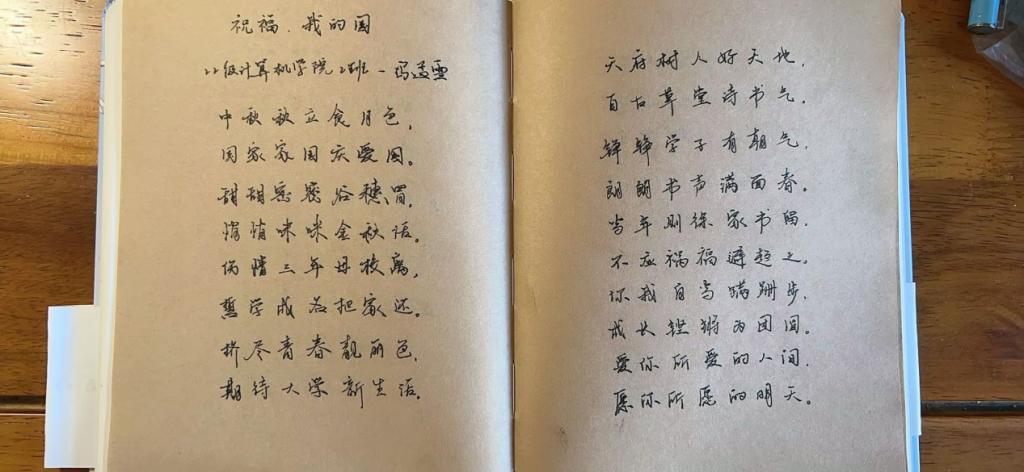 祝福.我的国
22级计算机学院2班-冯孟雪
中秋秋立食月色,
国家家国庆爱国。
甜甜密密谷穗冒,
悄悄咪咪金秋话。
伤情三年母校离,
暂学成名担家还。
拼尽青春靓丽色,
期待大学新生活。
天府树人好天地,
百古草堂诗书气,
铮铮学子有朝气,
朗朗书声满面春。
当年则徐家书留,
不应祸福避趋之,
你我自当蹒跚步,
成长铿锵为团圆。
爱你所爱的人间,
愿你所愿的明天。